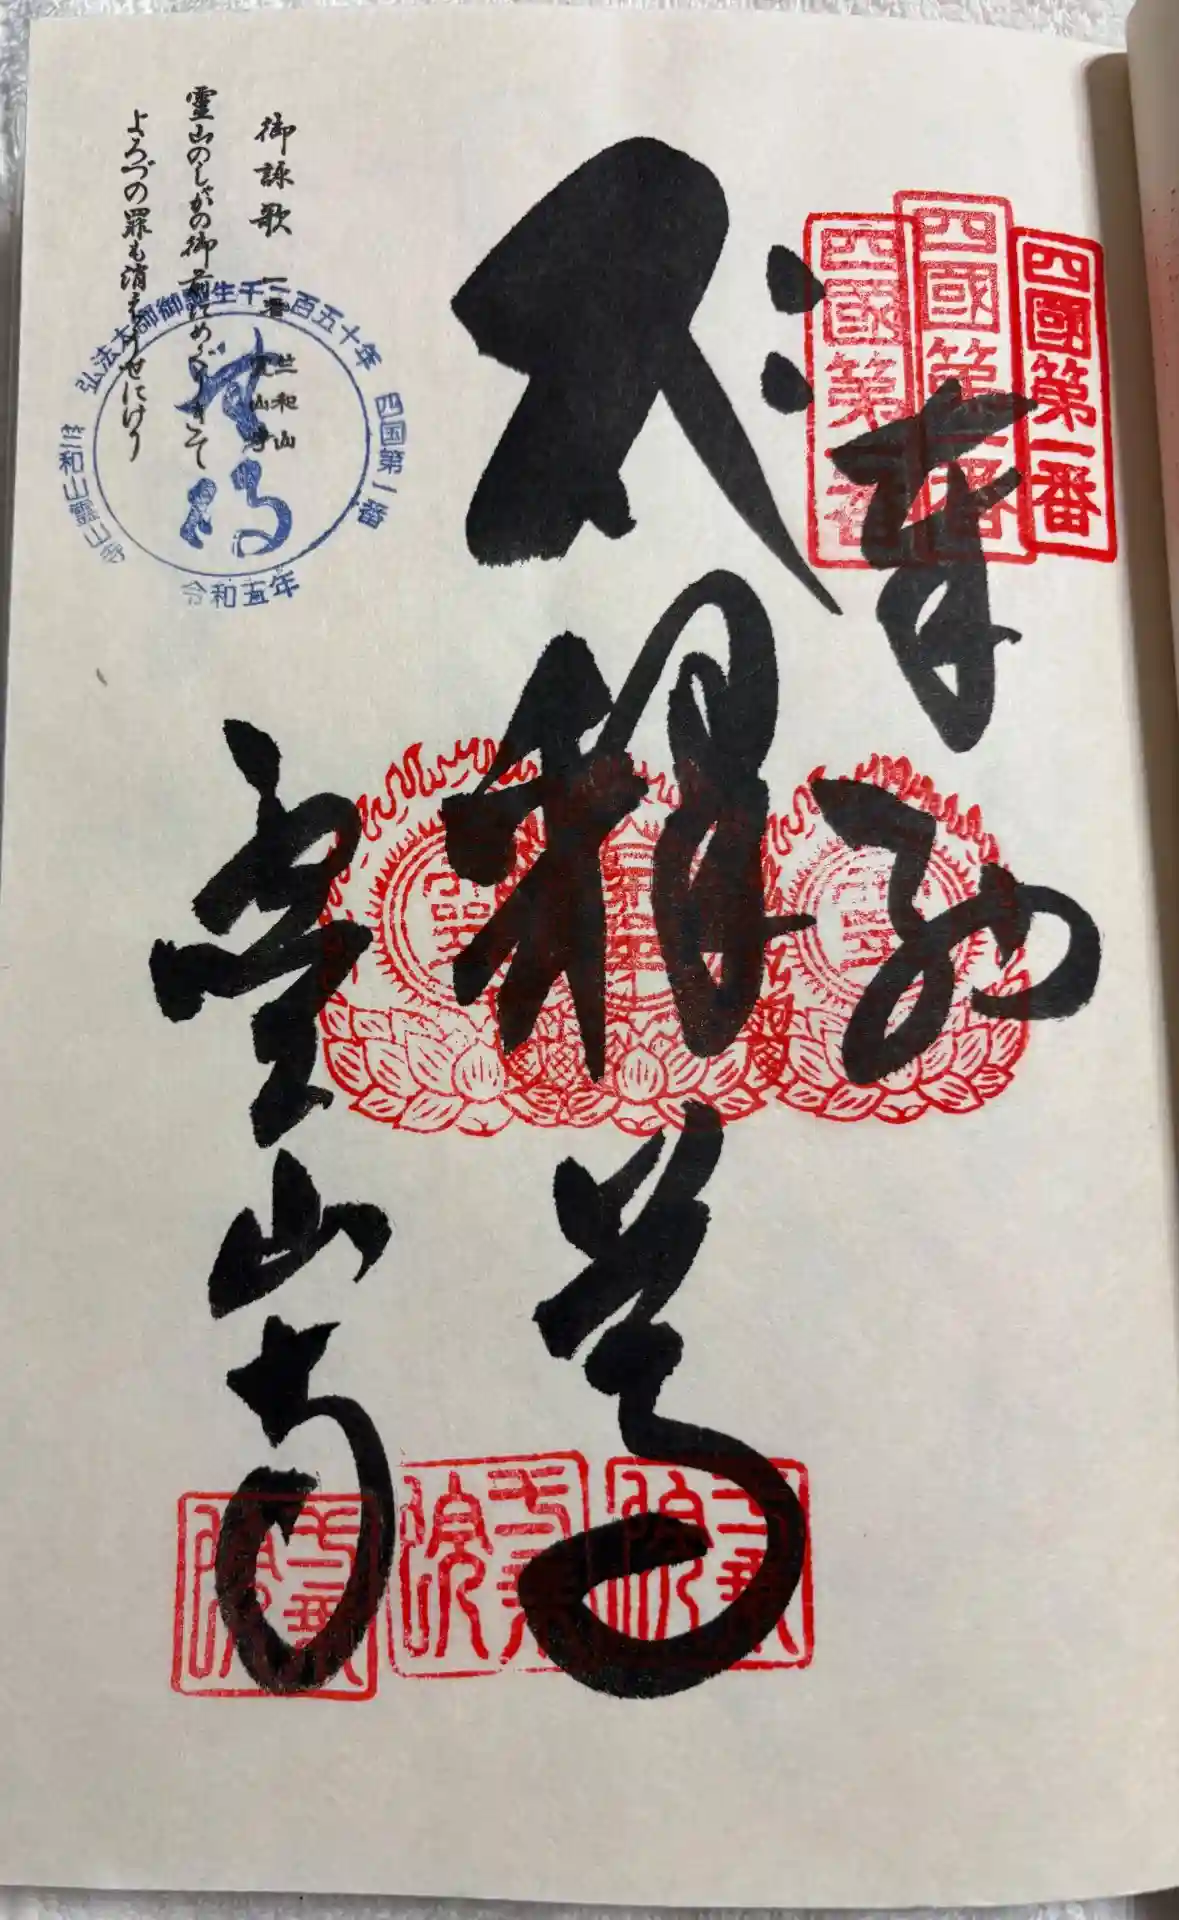 四國第一番
四國第一番
四國第一番
奉納
釋迦尊
霊山寺
御詠歌
一番 竺和山
霊山寺
霊山のしゃかの御前にめぐりきて
よろづの罪も消えうせにけり
弘法大師御誕生千二百五十年
四国第一番
竺和山霊山寺
令和五年